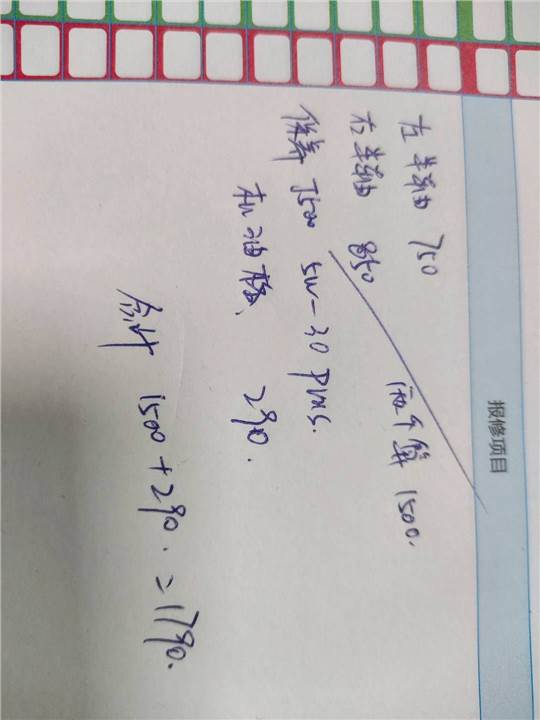 报修项目
左半轴 750
右半轴 850
两个算 1500.
保养 J500 5W-30 plus.
机油格、 290.
合计 1500+290.=1790.